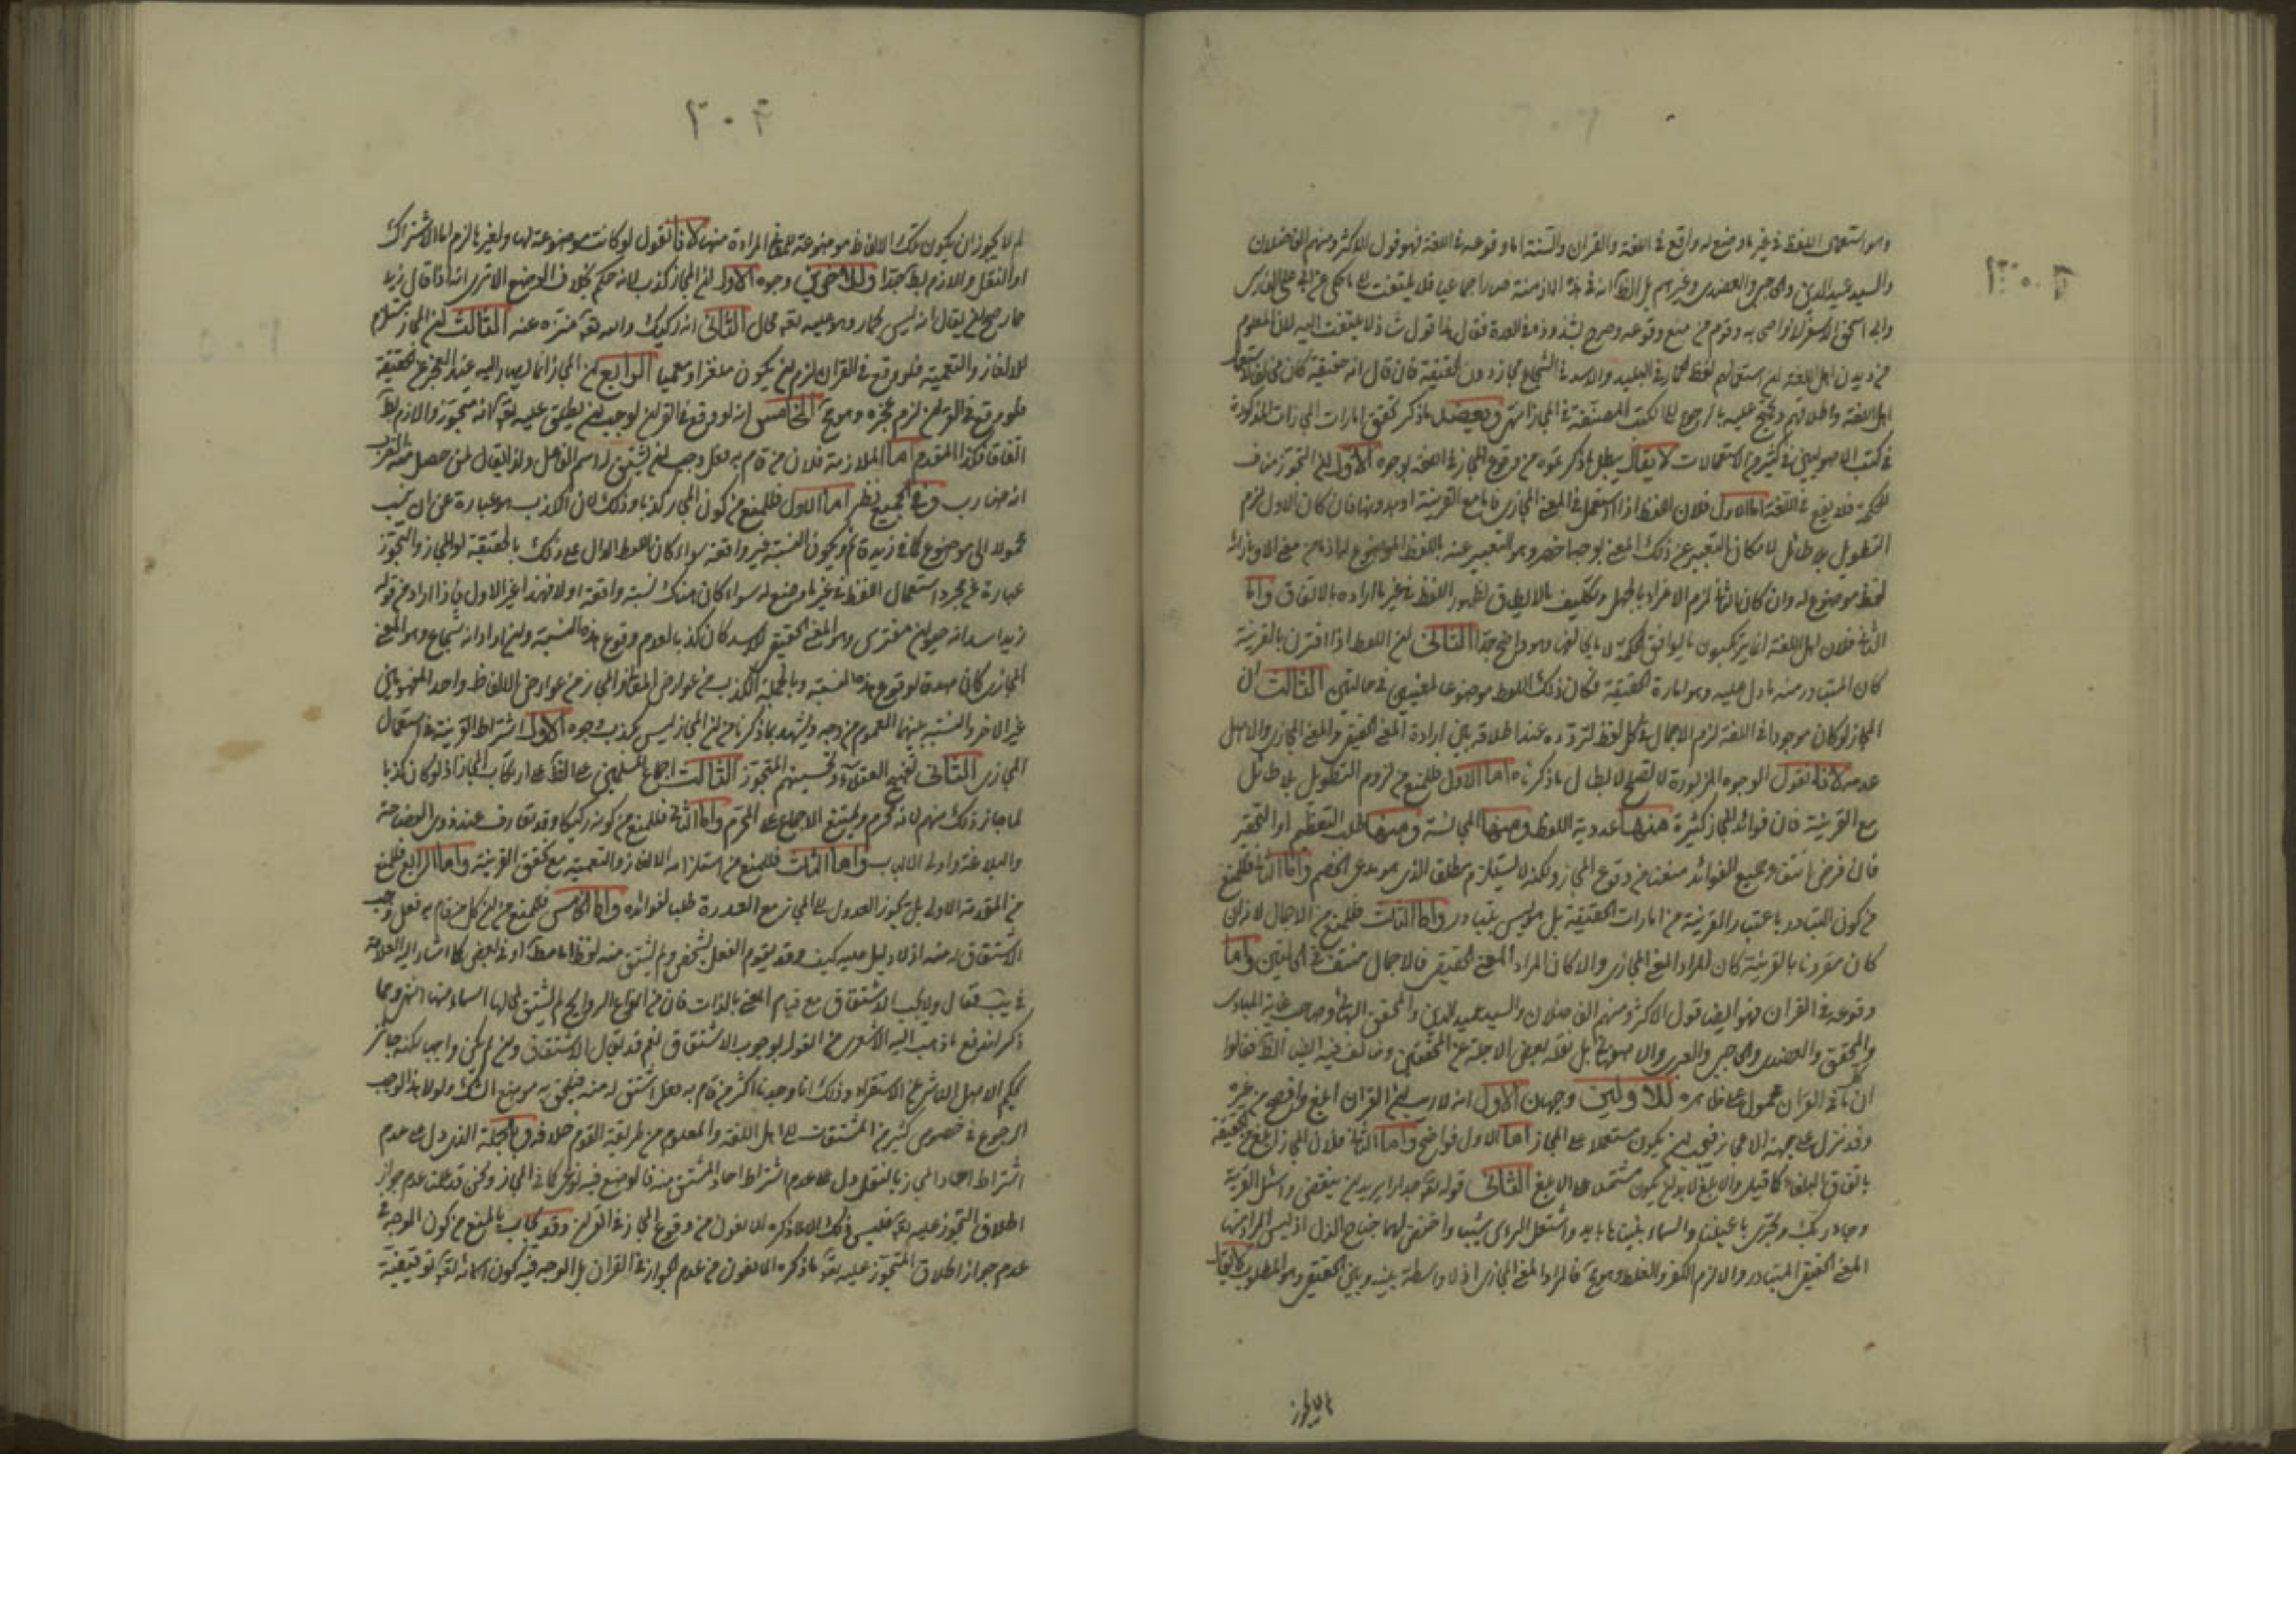 وهو استعمال اللفظ في غير ما وضع له واقع في اللغة والقران والسنة اما وقوعه في اللغة فهو قول الاكثر ومنهم الفاضلان
والسيد عميد الدين والحاجبي والعضدي وغيرهم بل الظ انه في هذه الازمنة صار اجماعيا فلا يلتفت الى ما حكي عن ابي علي الفارسي
من ديدن اهل اللغة استعمالهم لفظ الحمار في البليد والاسد في الشجاع مجازا دون الحقيقة فان قال انه حقيقة كان مخالفا
اهل اللغة واطلاقهم ويحتج عليه بالرجوع الى الكتب المصنفة في المجاز انتهى ويعضد ما ذكر تحقق امارات المجازات المذكورة
في كتب الاصوليين في كثير من الاستعمالات لا يقال يبطل ما ذكرتموه من وقوع المجاز في اللغة لوجوه الاول ان التجوز مناف
للحكمة فلا يقع في اللغة اما الاول فلان اللفظ اذا استعمل في المعنى المجازي فاما مع القرينة او بدونها فان كان الاول لزم
التطويل بلا طائل لامكان التعبير عن ذلك المعنى بوجه اخصر وهو التعبير عنه باللفظ الموضوع له اذ ما من معنى الا وبازائه
لفظ موضوع له وان كان الثاني لزم الاغراء بالجهل وتكليف ما لا يطاق لظهور اللفظ في غير ما اراده بالاتفاق واما
الثاني فلان اهل اللغة انما يرتكبون ما يوافق الحكمة لا ما يخالفها وهو واضح جدا الثاني ان اللفظ اذا اقترن بالقرينة
كان المتبادر منه ما دل عليه وهو امارة الحقيقة فكان ذلك اللفظ موضوعا لمعنيين في حالتين الثالث ان
المجاز لو كان موجودا في اللغة لزم الاجمال في كل لفظ لتردده عند اطلاقه بين ارادة المعنى الحقيقي والمعنى المجازي والاصل
عدمه لانا نقول الوجوه المزبورة لا تصلح لابطال ما ذكرناه اما الاول فللمنع من لزوم التطويل بلا طائل
مع القرينة فان فوائد المجاز كثيرة منها عذوبة اللفظ ومنها المجانسة ومنها طلب التعظيم او التحقير
فان فرض انتفاء جميع الفوائد منعنا من وقوع المجاز ولكنه لا يستلزم مطلقا الذي هو مدعى الخصم واما الثاني فللمنع
من كون التبادر باعتبار القرينة من امارات الحقيقة بل هو ليس بتبادر واما الثالث فللمنع من الاجمال لانه ان
كان مقرونا بالقرينة كان المراد المعنى المجازي والا كان المراد المعنى الحقيقي فالاجمال منتف في الحالتين واما
وقوعه في القران فهو ايضا قول الاكثر ومنهم الفاضلان والسيد عميد الدين والمحقق البهائي وصاحب غاية المبادي
والمحقق والعضدي والحاجبي والعبري والاصفهاني بل نقله بعض الاجلة عن المحققين وخالف فيه ايضا الظاهرية فقالوا
ان ما في القران محمول على ظاهره للاولين وجهان الاول انه لا ريب ان القران ابلغ وافصح من غيره
وقد نزل على جهة الاعجاز فيجب ان يكون مشتملا على المجاز اما الاول فواضح واما الثاني فلان المجاز ابلغ من الحقيقة
باتفاق البلغاء كما قيل والابلغ لا بد ان يكون مشتملا على الابلغ الثاني قوله تع جدارا يريد ان ينقض واسئل القرية
وجاء ربك وتجري باعيننا والسماء بنيناها بايد واشتعل الراس شيبا واخفض لهما جناح الذل اذ ليس المراد منها
المعنى الحقيقي المتبادر والا لزم الكفر والغلط وهو مح فالمراد المعنى المجازي اذ لا واسطة بينه وبين الحقيقي وهو المطلوب لا يقال
لم لا يجوز
٣٠٤
لم لا يجوز ان يكون تلك الالفاظ موضوعة للمعاني المرادة منها لانا نقول لو كانت موضوعة لها ولغيرها لزم اما الاشتراك
او النقل واللازم بط جدا وللاخرين وجوه الاول ان المجاز كذب لانه حكم بخلاف الوضع الا ترى انه اذا قال زيد
حمار صح ان يقال انه ليس بحمار وهو عليه تع محال الثاني انه ركيك والله تع منزه عنه الثالث ان المجاز يستلزم
للالغاز والتعمية فلو وقع في القران لزم ان يكون ملغزا ومعميا الرابع ان المجاز انما يصار اليه عند العجز عن الحقيقة
فلو وقع في القران لزم عجزه وهو مح الخامس انه لو وقع في القران لوجب ان يطلق عليه تع انه متجوز واللازم بط
اتفاقا فكذا المقدم اما الملازمة فلان من قام به فعل وجب ان يشتق له اسم الفاعل ولذا يقال لمن حصل منه الضرب
انه ضارب وفي الجميع نظر اما الاول فللمنع من كون المجاز كذبا وذلك لان الكذب هو عبارة عن ان ينسب
محمولا الى موضوع كما في زيد قائم ويكون النسبة غير واقعة سواء كان اللفظ الدال على ذلك بالحقيقة او المجاز والتجوز
عبارة عن مجرد استعمال اللفظ في غير ما وضع له سواء كان هناك نسبة واقعة او لا فهذا غير الاول فاذا اراد من قوله
زيد اسد انه حيوان مفترس وهو المعنى الحقيقي للاسد كان كذبا لعدم وقوع هذه النسبة وان اراد انه شجاع وهو المعنى
المجازي كان صدقا لوقوع هذه النسبة وبالجملة الكذب من عوارض المعاني والمجاز من عوارض الالفاظ واحد المفهومين
غير الاخر والنسبة بينهما العموم من وجه ويشهد بما ذكرنا من ان المجاز ليس بكذب وجوه الاول اشتراط القرينة في استعمال
المجازي الثاني تقبيح العقلاء وتحسينهم المتجوز الثالث اجماع المسلمين على الظ على ارتكاب المجاز اذ لو كان كذبا
لما جاز ذلك منهم لانه محرم ويمتنع الاجماع على المحرم واما الثاني فللمنع من كونه ركيكا وقد تعارف عند ذوي الفصاحة
والبلاغة واولي الالباب واما الثالث فللمنع من استلزامه الالغاز والتعمية مع تحقق القرينة واما الرابع فللمنع
من المقدمة الاولى بل يجوز العدول الى المجاز مع القدرة طلبا لفوائده واما الخامس فللمنع من ان كل من قام به فعل وجب
الاشتقاق له منه اذ لا دليل عليه كيف وقد يقوم الفعل بشخص ولم يشتق منه لفظ اما مط او في بعض كما اشار اليه العلامة
في يب فقال ولا يجب الاشتقاق مع قيام المعنى بالذات فان من انواع الروائح لم يشتق لمحالها اسماء منها انتهى وبما
ذكر اندفع ما ذهب اليه الاشعري من القول بوجوب الاشتقاق نعم قد يقال الاشتقاق وان لم يكن واجبا لكنه جائز
بحكم الاصل الناشي عن الاستقراء وذلك انا وجدنا اكثر من قام به فعل اشتق له منه فيلحق به موضع الشك ولولا هذا لوجب
الرجوع في خصوص كثير من المشتقات الى اهل اللغة والمعلوم من طريقة القوم خلافه وبالجملة الذي دل على عدم
اشتراط احاد المجاز بالنقل دل على عدم اشتراط احاد المشتق منه فالوضع فيه نوعي كما في المجاز ولكن قد يمنع عدم جواز
اطلاق المتجوز عليه تع فليس ذلك الا لما ذكره المانعون من وقوع المجاز في القران وقد يجاب بالمنع من كون الوجه في
عدم جواز اطلاق المتجوز عليه تع ما ذكره المانعون من عدم الجواز في القران بل الوجه فيه كون اسمائه تع توقيفية